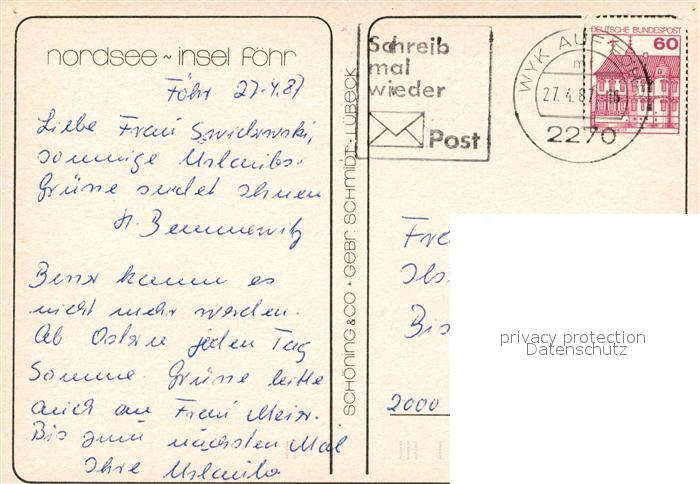 nordsee ~ insel föhr
Föhr 27.4.87
Liebe Frau
sonnige Urlaubs-
Grüsse sendet Ihnen
H. Bennewitz
Besser kann es
nicht mehr werden.
Ab Ostern jeden Tag
Sonne. Grüsse bitte
auch an Frau Meier.
Bis zum nächsten Mal
Ihre Urlaub
SCHÖNING & CO • GEBR. SCHMIDT • LÜBECK
Schreib
mal
wieder
Post
WYK AUF
27.4.87
2270
DEUTSCHE BUNDESPOST
60
Fra
Bis
2000
privacy protection
Datenschutz